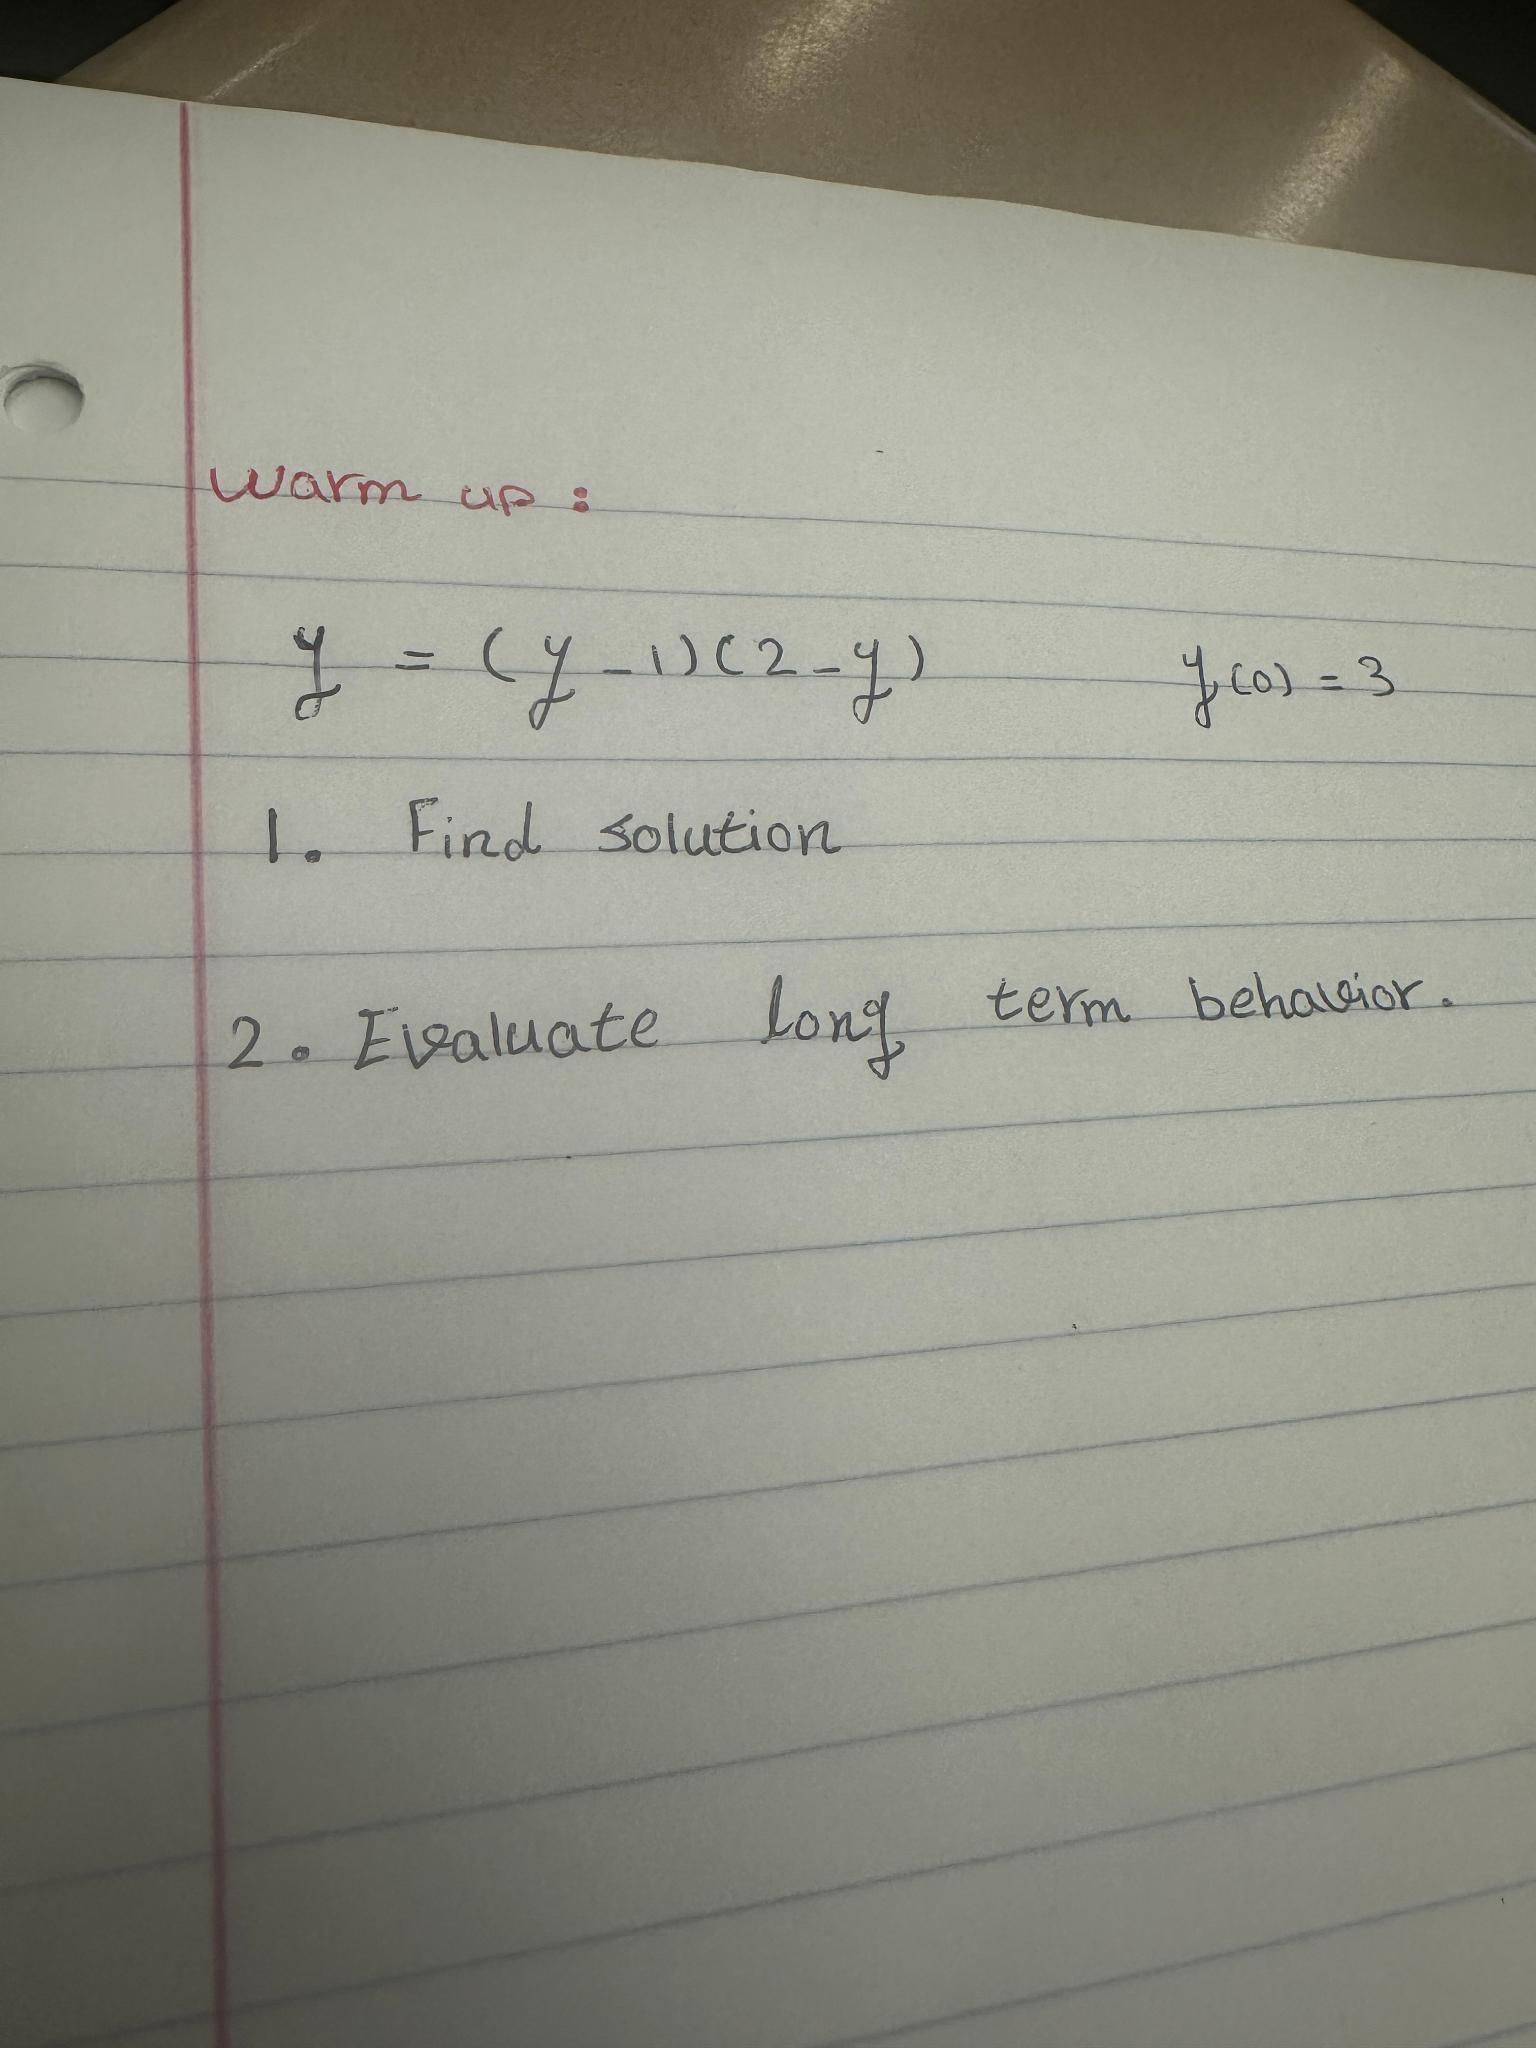 warm up :
y = (y-1)(2-y) y(0) = 3
1. Find solution
2. Evaluate long term behavior.